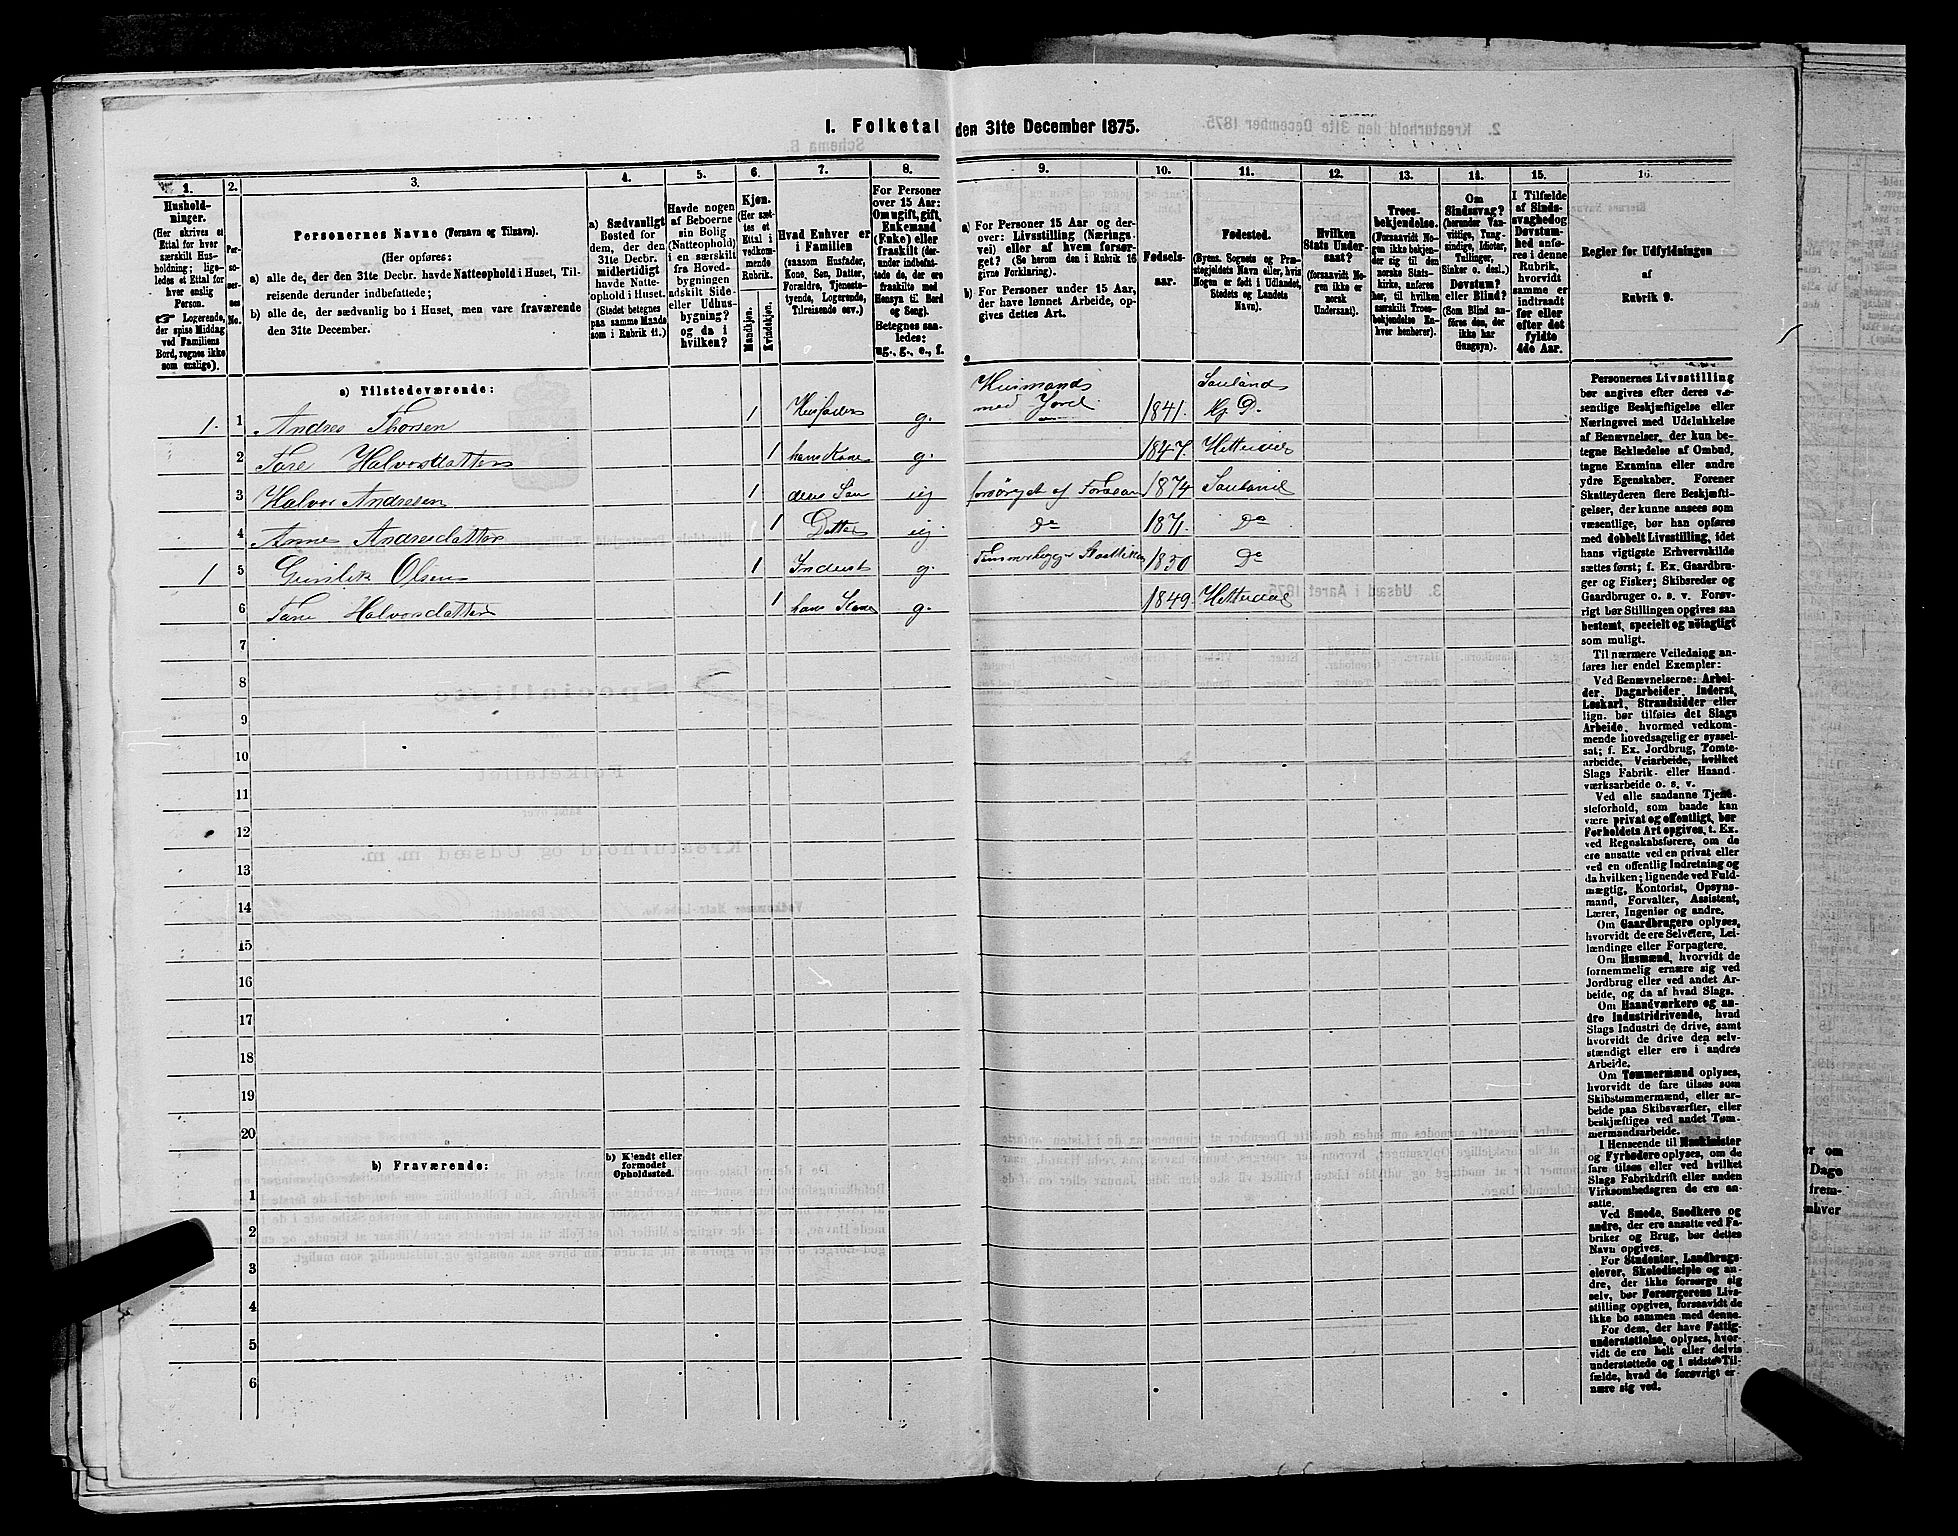 I. Folketal den 31te December 1875.
1.
Husholdninger.
(Her skrives et
Ettal for hver
særskilt Husholdning; ligeledes et Ettal for
hver enslig
Person.
☞ Logerende,
der spise Middag
ved Familiens
Bord, regnes ikke
som enslige).
2.
Personernes No.
3.
Personernes Navne (Fornavn og Tilnavn).
(Her opføres:
a) alle de, der den 31te Decbr. havde Natteophold i Huset, Tilreisende derunder indbefattede;
b) alle de, der sædvanlig bo i Huset, men vare fraværende
den 31te December.
4.
a) Sædvanligt
Bosted for
dem, der den
31te Decbr.
midlertidigt
havde Natteophold i Huset.
(Stedet betegnes
paa samme Maade
som i Rubrik 11.)
5.
Havde nogen
af Beboerne
sin Bolig
(Natteophold)
i en særskilt
fra Hovedbygningen
adskilt Side-
eller Udhusbygning?
og da i
hvilken?
6.
Kjøn.
(Her sættes et
Ettal i
vedkommende
Rubrik.
Mandkjøn.
Kvindekjøn.
7.
Hvad Enhver er
i Familien
(saasom Husfader,
Kone, Søn, Datter,
Forældre, Tjenestetyende, Logerende,
Tilreisende osv.)
8.
For Personer
over 15 Aar:
Om ugift, gift,
Enkemand
(Enke) eller
fraskilt (derunder indbefattede de, der ere
fraskilte med
Hensyn til Bord
og Seng).
Betegnes saaledes:
ug., g., e., f.
9.
a) For Personer 15 Aar og derover: Livsstilling (Næringsvei) eller af hvem forsørget? (Se herom den i Rubrik 16
givne Forklaring).
b) For Personer under 15 Aar,
der have lønnet Arbeide, opgives dettes Art.
10.
Fødselsaar.
11.
Fødested.
(Byens, Sognets og Præstegjeldets Navn eller, hvis
Nogen er født i Udlandet,
Stedets og Landets
Navn).
12.
Hvilken
Stats Undersaat?
(forsaavidt Nogen ikke er
norsk
Undersaat).
13.
Troesbekjendelse.
(Forsaavidt Nogen ikke bekjender sig til den
norske Statskirke, anføres
her, til hvilken
særskilt Troesbekjendelse Enhver henhører).
14.
Om
Sindssvag?
(herunder Vanvittige, Tungsindige, Idioter,
Tullinger,
Sinker o. desl.)
Døvstum?
eller Blind?
(Som Blind anføres den, der
ikke har
Gangsyn).
15.
I Tilfælde
af Sindssvaghed og
Døvstumhed anføres i denne
Rubrik,
hvorvidt
samme er
indtraadt
før eller
efter det
fyldte
4de Aar.
16.
Regler for Udfyldningen
af
Rubrik 9.
a) Tilstedeværende:
1. 1 Andres Thorsen 1 Husfader g. Husmand med Jord 1841. Sauland Hj. P.
2 Tore Halvorsdatter 1 hans Kone g. 1847. Hetterdal
3 Halvor Andresen 1 deres Søn ug forsørget af Forældrene 1874 Sauland
4 Anne Andresdatter 1 Datter ug Do 1871. Do
1 5 Gunlek Olsen 1 Inderst g. 1850 Do
6 Tone Halvorsdatter 1 hans Kone g. 1849. Hetterdal
7
8
9
10
11
12
13
14
15
16
17
18
19
20
b) Fraværende:
b) Kjendt eller
formodet
Opholdssted.
1
2
3
4
5
6
Personernes Livsstilling
bør angives efter deres væsentlige Beskjæftigelse eller
Næringsvei med Udelukkelse
af Benævnelser, der kun betegne Beklædelse af Ombud,
tagne Examina eller andre
ydre Egenskaber. Forener
Skatteyderen flere Beskjæftigelser, der kunne ansees som
væsentlige, bør han opføres
med dobbelt Livsstilling, idet
hans vigtigste Erhvervskilde
sættes først; f. Ex. Gaardbruger og Fisker; Skibsreder og
Gaardbruger o. s. v. Forøvrigt bør Stillingen opgives saa
bestemt, specielt og nöiagtigt
som muligt.
Til nærmere Veiledning anføres her endel Exempler:
Ved Benævnelserne: Arbeider, Dagarbeider, Inderst,
Løskarl, Strandsidder eller
lign. bør tilføies det Slags
Arbeide, hvormed vedkommende hovedsagelig er sysselsat; f. Ex. Jordbrug, Tomtearbeide, Veiarbeide, hvilket
Slags Fabrik- eller Haandværksarbeide o. s. v.
Ved alle saadanne Tjenesteforhold, som baade kan
være privat og offentligt, bør
Forholdets Art opgives, t. Ex.
ved Regnskabsførere, om de
ere ansatte ved en privat eller
ved en offentlig Indretning og
da hvilken; lignende ved Fuldmægtig, Kontorist, Opsynsmand, Forvalter, Assistent,
Lærer, Ingeniør og andre.
Om Gaardbrugere oplyses,
hvorvidt de ere Selveiere, Leilændinge eller Forpagtere.
Om Husmænd, hvorvidt de
fornemmelig ernære sig ved
Jordbrug eller ved andet Arbeide, og da af hvad Slags.
Om Haandværkere og andre Industridrivende, hvad
Slags Industri de drive, samt
hvorvidt de drive den selvstændigt eller ere i andres
Arbeide.
Om Tømmermænd oplyses,
hvorvidt de fare tilsøs som
Skibstømmermænd, eller arbeide paa Skibsværfter, eller
beskjæftiges ved andet Tømmermandsarbeide.
I Henseende til Maskinister
og Fyrbødere oplyses, om de
fare tilsøs eller ved hvilket
Slags Fabrikdrift eller anden
Virksomhedsgren de ere ansatte.
Ved Smede, Snedkere og
andre, der ere ansatte ved Fabriker og Brug, bør dettes
Navn opgives.
For Studenter, Landbrugselever, Skoledisciple og andre, der ikke forsørge sig
selv, bør Forsørgerens Livsstilling opgives, forsaavidt de
ikke bo sammen med denne.
For dem, der have Fattigunderstøttelse, oplyses, hvorvidt de ere helt eller delvis
understøttede og i sidste Tilfælde, hvad de forøvrigt ernære sig ved.
er om
Dage
frem-
nhver